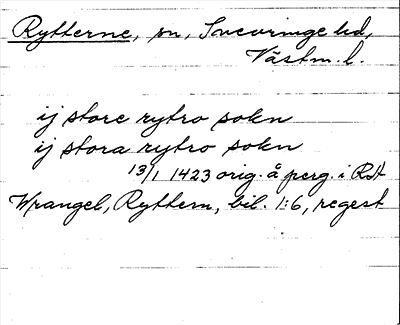 Rytterne, sn, Snevringe hd,
Västm. l.
ij store rytro sokn
ij stora rytro sokn
13/1 1423 orig. å perg. i RA
Wrangel, Ryttern, bil. 1:6, regest